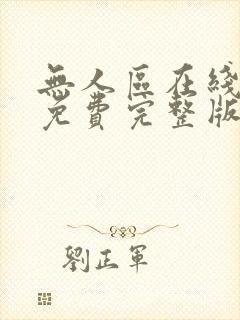 無人區在綫
免費完整版
劉正軍